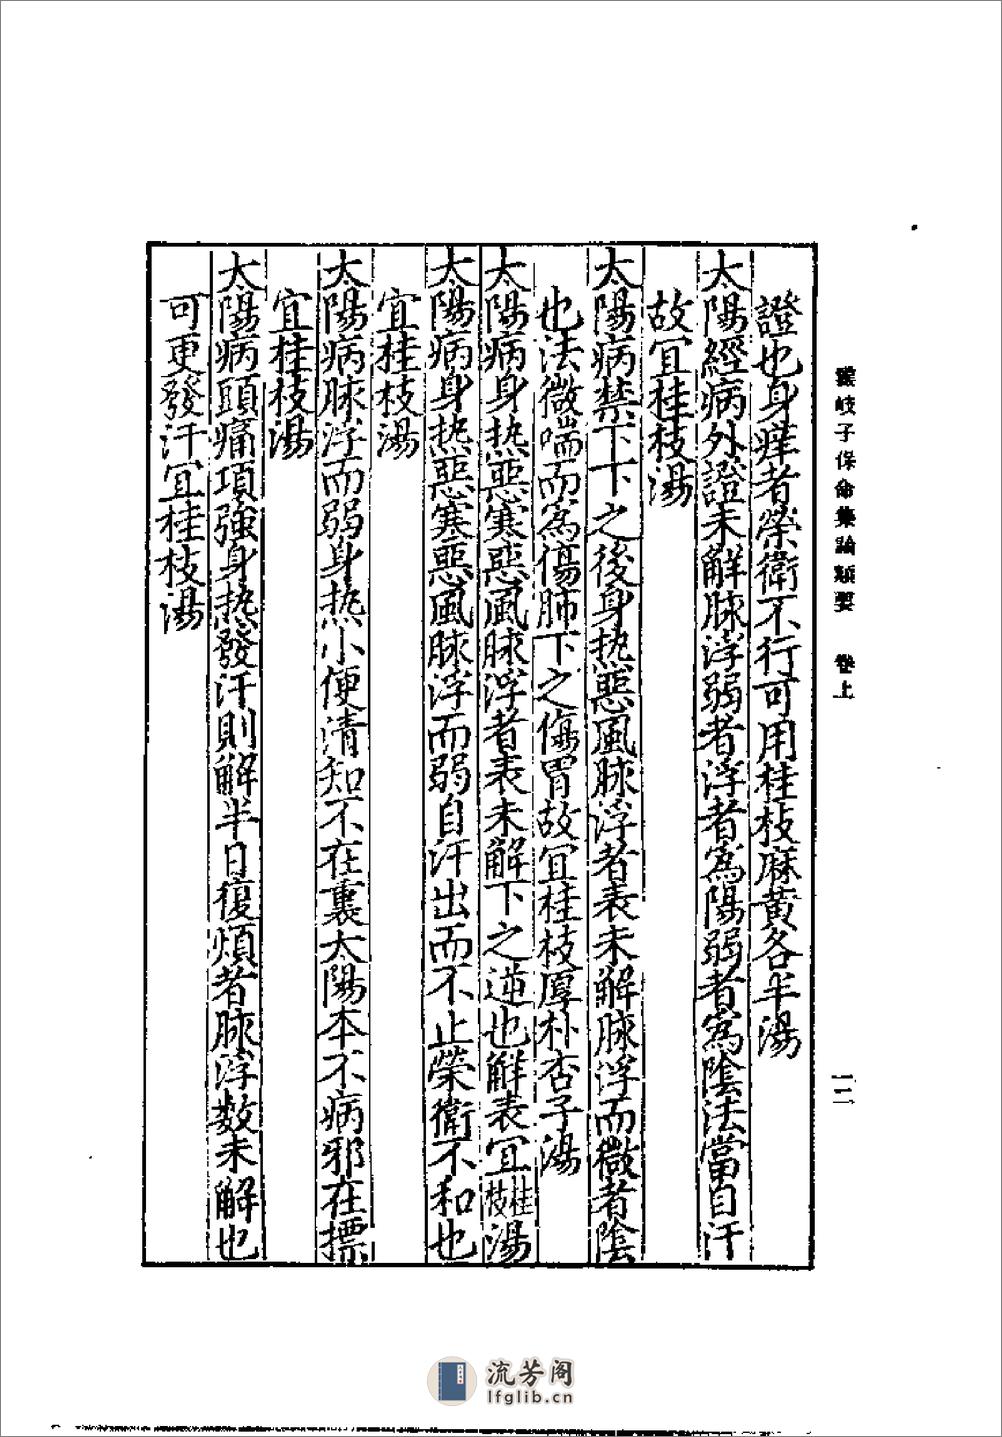 雲岐子保命集論類要　卷上
一二
證也身痒者榮衛不行可用桂枝麻黄各半湯
太陽經病外證未解脉浮弱者浮者為陽弱者為陰法當自汗
故宜桂枝湯
太陽病禁下下之後身热惡風脉浮者表未解脉浮而微者陰
也法微喘而為傷肺下之傷胃故宜桂枝厚朴杏子湯
太陽病身热惡寒惡風脉浮者表未解下之逆也解表宜桂枝湯
太陽病身热惡寒惡風脉浮而弱自汗出而不止榮衛不和也
宜桂枝湯
太陽病脉浮而弱身热小便清知不在裏太陽本不病邪在摽
宜桂枝湯
太陽病頭痛項強身热發汗則解半日復煩者脉浮数未解也
可更發汗宜桂枝湯
流芳阁
lfglib.cn